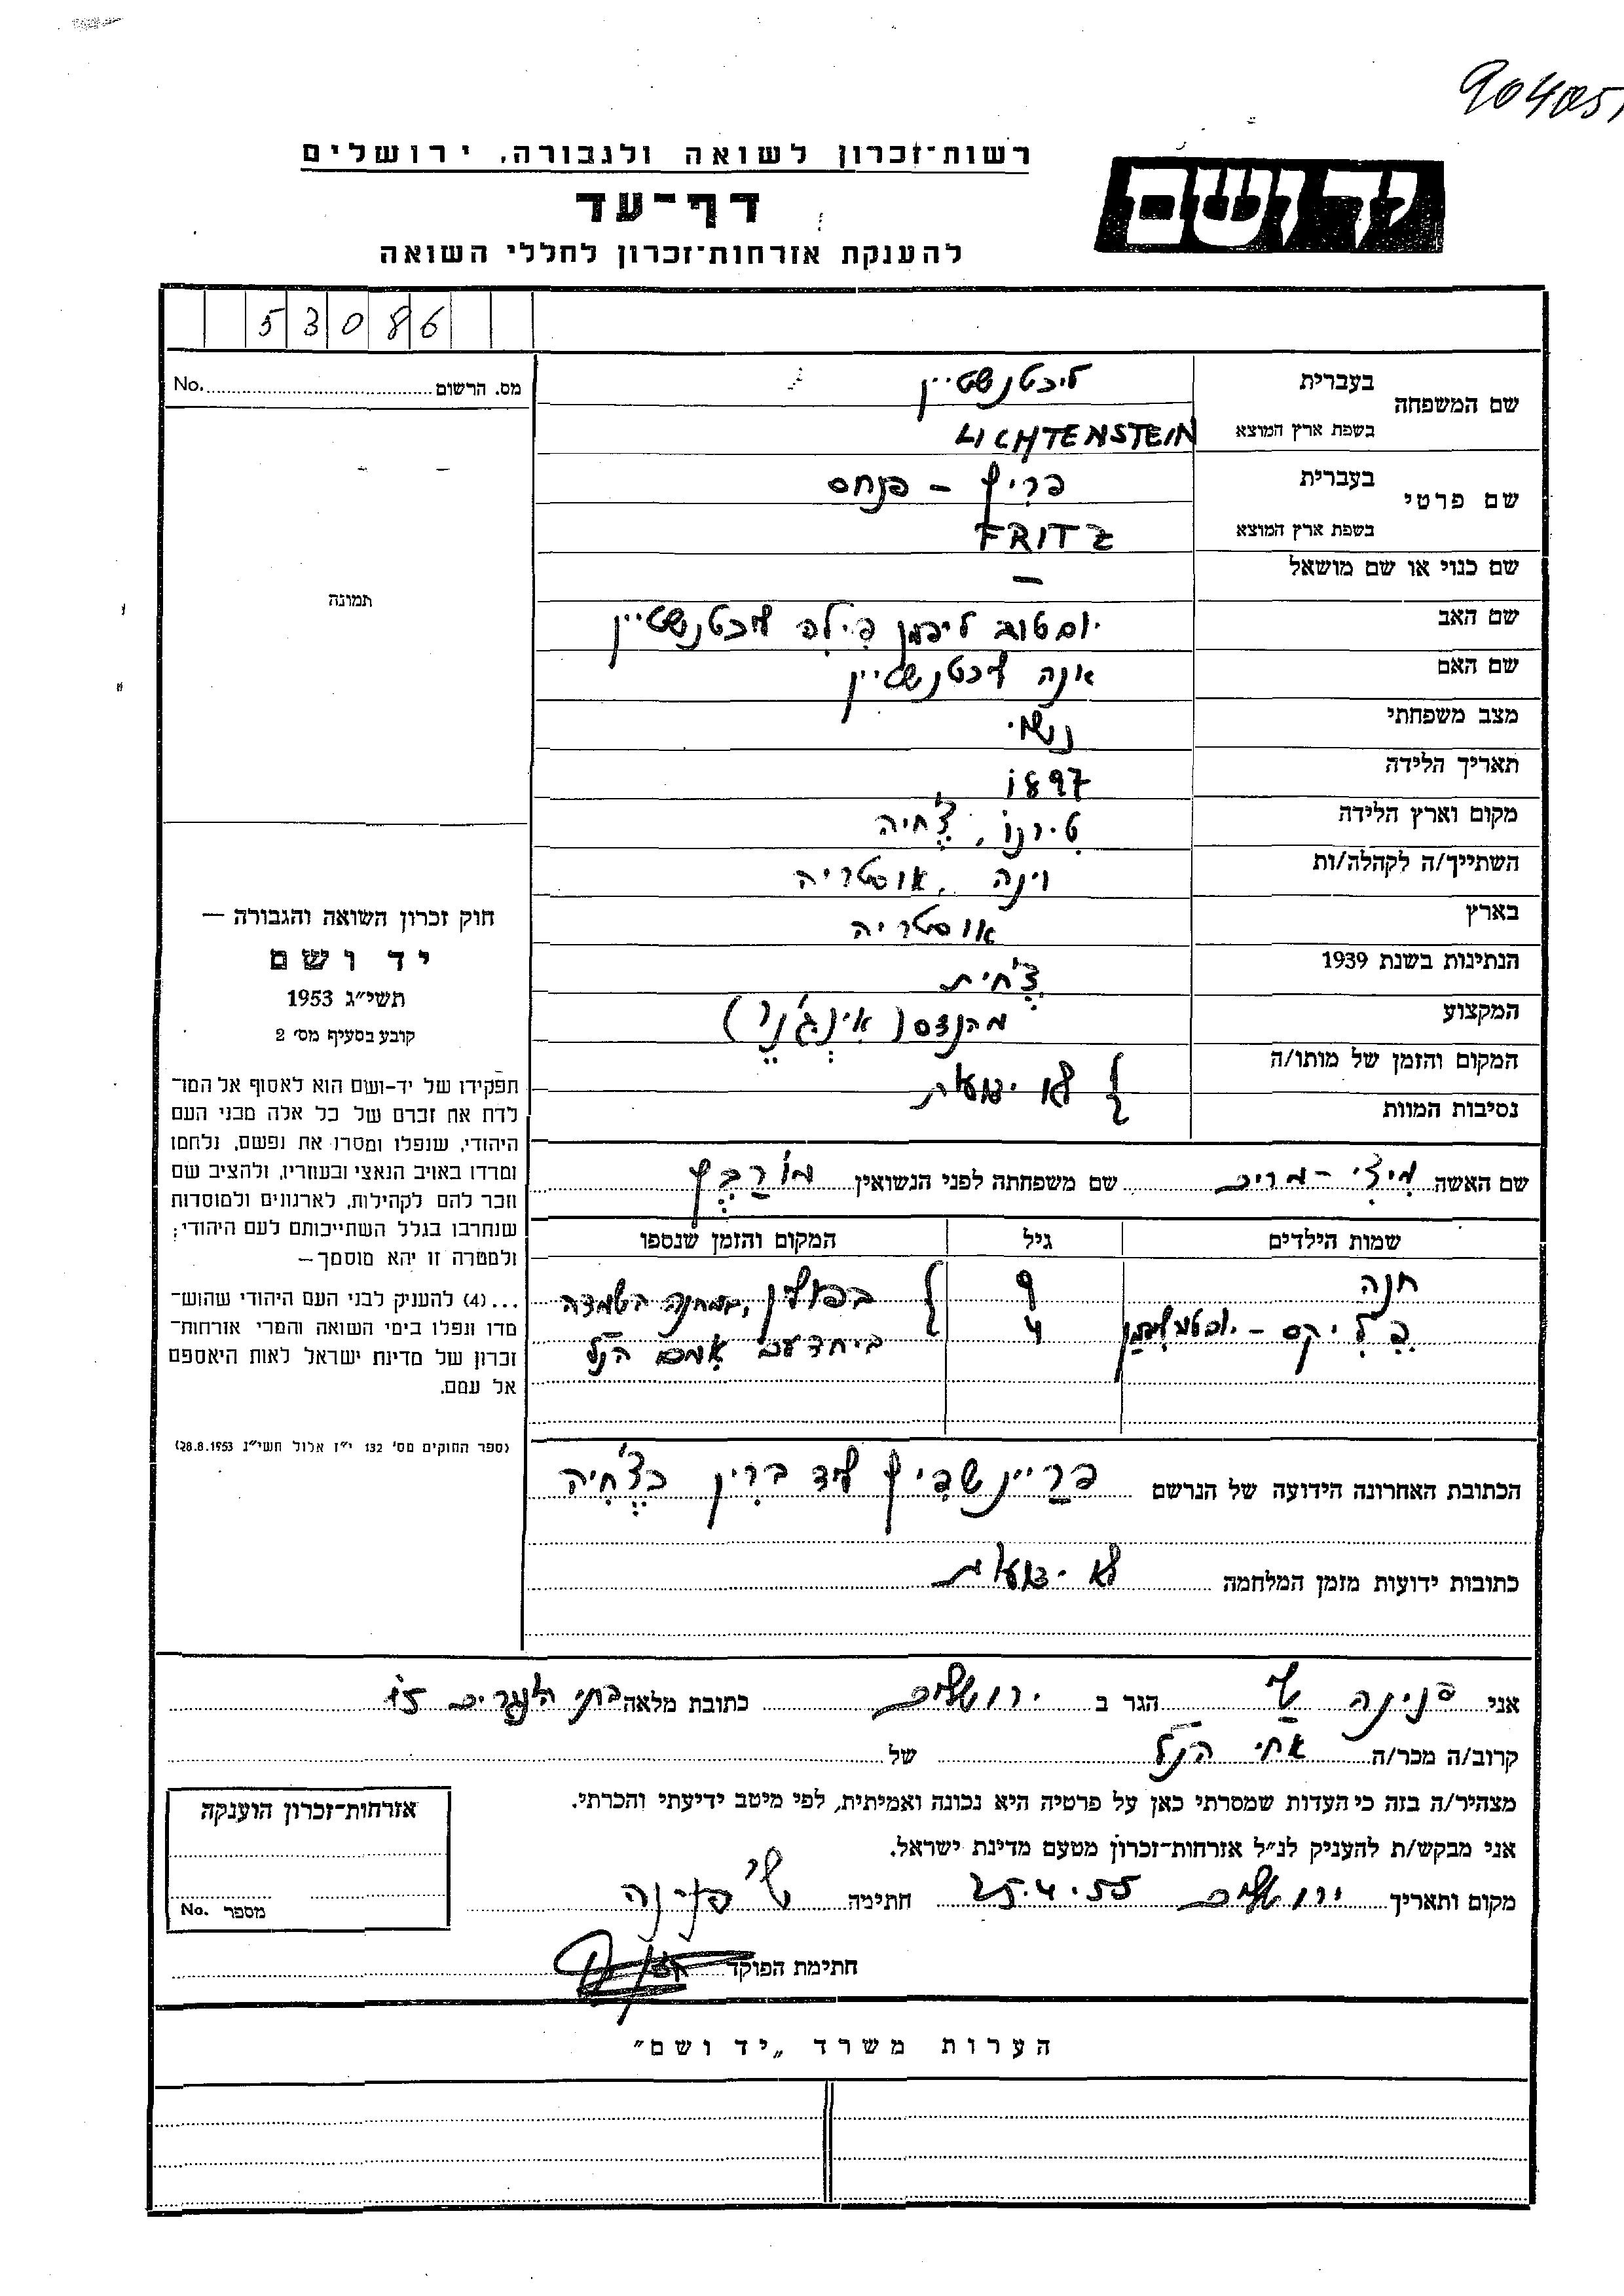 904051
רשות־זכרון לשואה ולגבורה, ירושלים
יד ושם
דף־עד
להענקת אזרחות־זכרון לחללי השואה
53086
מס. הרשום No.
שם המשפחה
בעברית ליכטנשטיין
בשפת ארץ המוצא LICHTENSTEIN
שם פרטי
בעברית פריץ – פנחס
בשפת ארץ המוצא FRITZ
שם כנוי או שם מושאל –
שם האב יום טוב ליפמן פילה ליכטנשטיין
שם האם אנה ליכטנשטיין
מצב משפחתי נשוי
תאריך הלידה 1897
מקום וארץ הלידה טירנו, צ'חיה
השתייך/ה לקהלה/ות וינה, אוסטריה
בארץ אוסטריה
הנתינות בשנת 1939 צ'חית
המקצוע מהנדס (אינג'נר)
המקום והזמן של מותו/ה
נסיבות המוות
לא ידועות
תמונה
חוק זכרון השואה והגבורה —
יד ושם
תשי״ג 1953
קובע בסעיף מס׳ 2
תפקידו של יד-ושם הוא לאסוף אל המו־
לדת את זכרם של כל אלה מבני העם
היהודי, שנפלו ומסרו את נפשם, נלחמו
ומרדו באויב הנאצי ובעוזריו, ולהציב שם
וזכר להם לקהילות, לארגונים ולמוסדות
שנחרבו בגלל השתייכותם לעם היהודי;
ולמטרה זו יהא מוסמך—
...(4) להעניק לבני העם היהודי שהוש־
מדו ונפלו בימי השואה והמרי אזרחות־
זכרון של מדינת ישראל לאות היאספם
אל עמם.
(ספר החוקים מס׳ 132 י״ז אלול תשי״ג 28.8.1953)
שם האשה מיצי – מרים שם משפחתה לפני הנשואין מורבץ
שמות הילדים גיל המקום והזמן שנספו
חנה 9 בפולין, במחנה השמדה
פליקס – יום טוב ליפמן 4 ביחד עם אמם הנ״ל
הכתובת האחרונה הידועה של הנרשם פריינשפיץ ליד ברין בצ'חיה
כתובות ידועות מזמן המלחמה לא ידועות
אני פנינה שי הגר ב ירושלים כתובת מלאה בתי 15
קרוב/ה מכר/ה אחי הנ״ל של
מצהיר/ה בזה כי העדות שמסרתי כאן על פרטיה היא נכונה ואמיתית, לפי מיטב ידיעתי והכרתי.
אני מבקש/ת להעניק לנ״ל אזרחות־זכרון מטעם מדינת ישראל.
מקום ותאריך ירושלים 25.4.55 חתימה שי פנינה
חתימת הפוקד
אזרחות־זכרון הוענקה
מספר No.
הערות משרד „יד ושם״